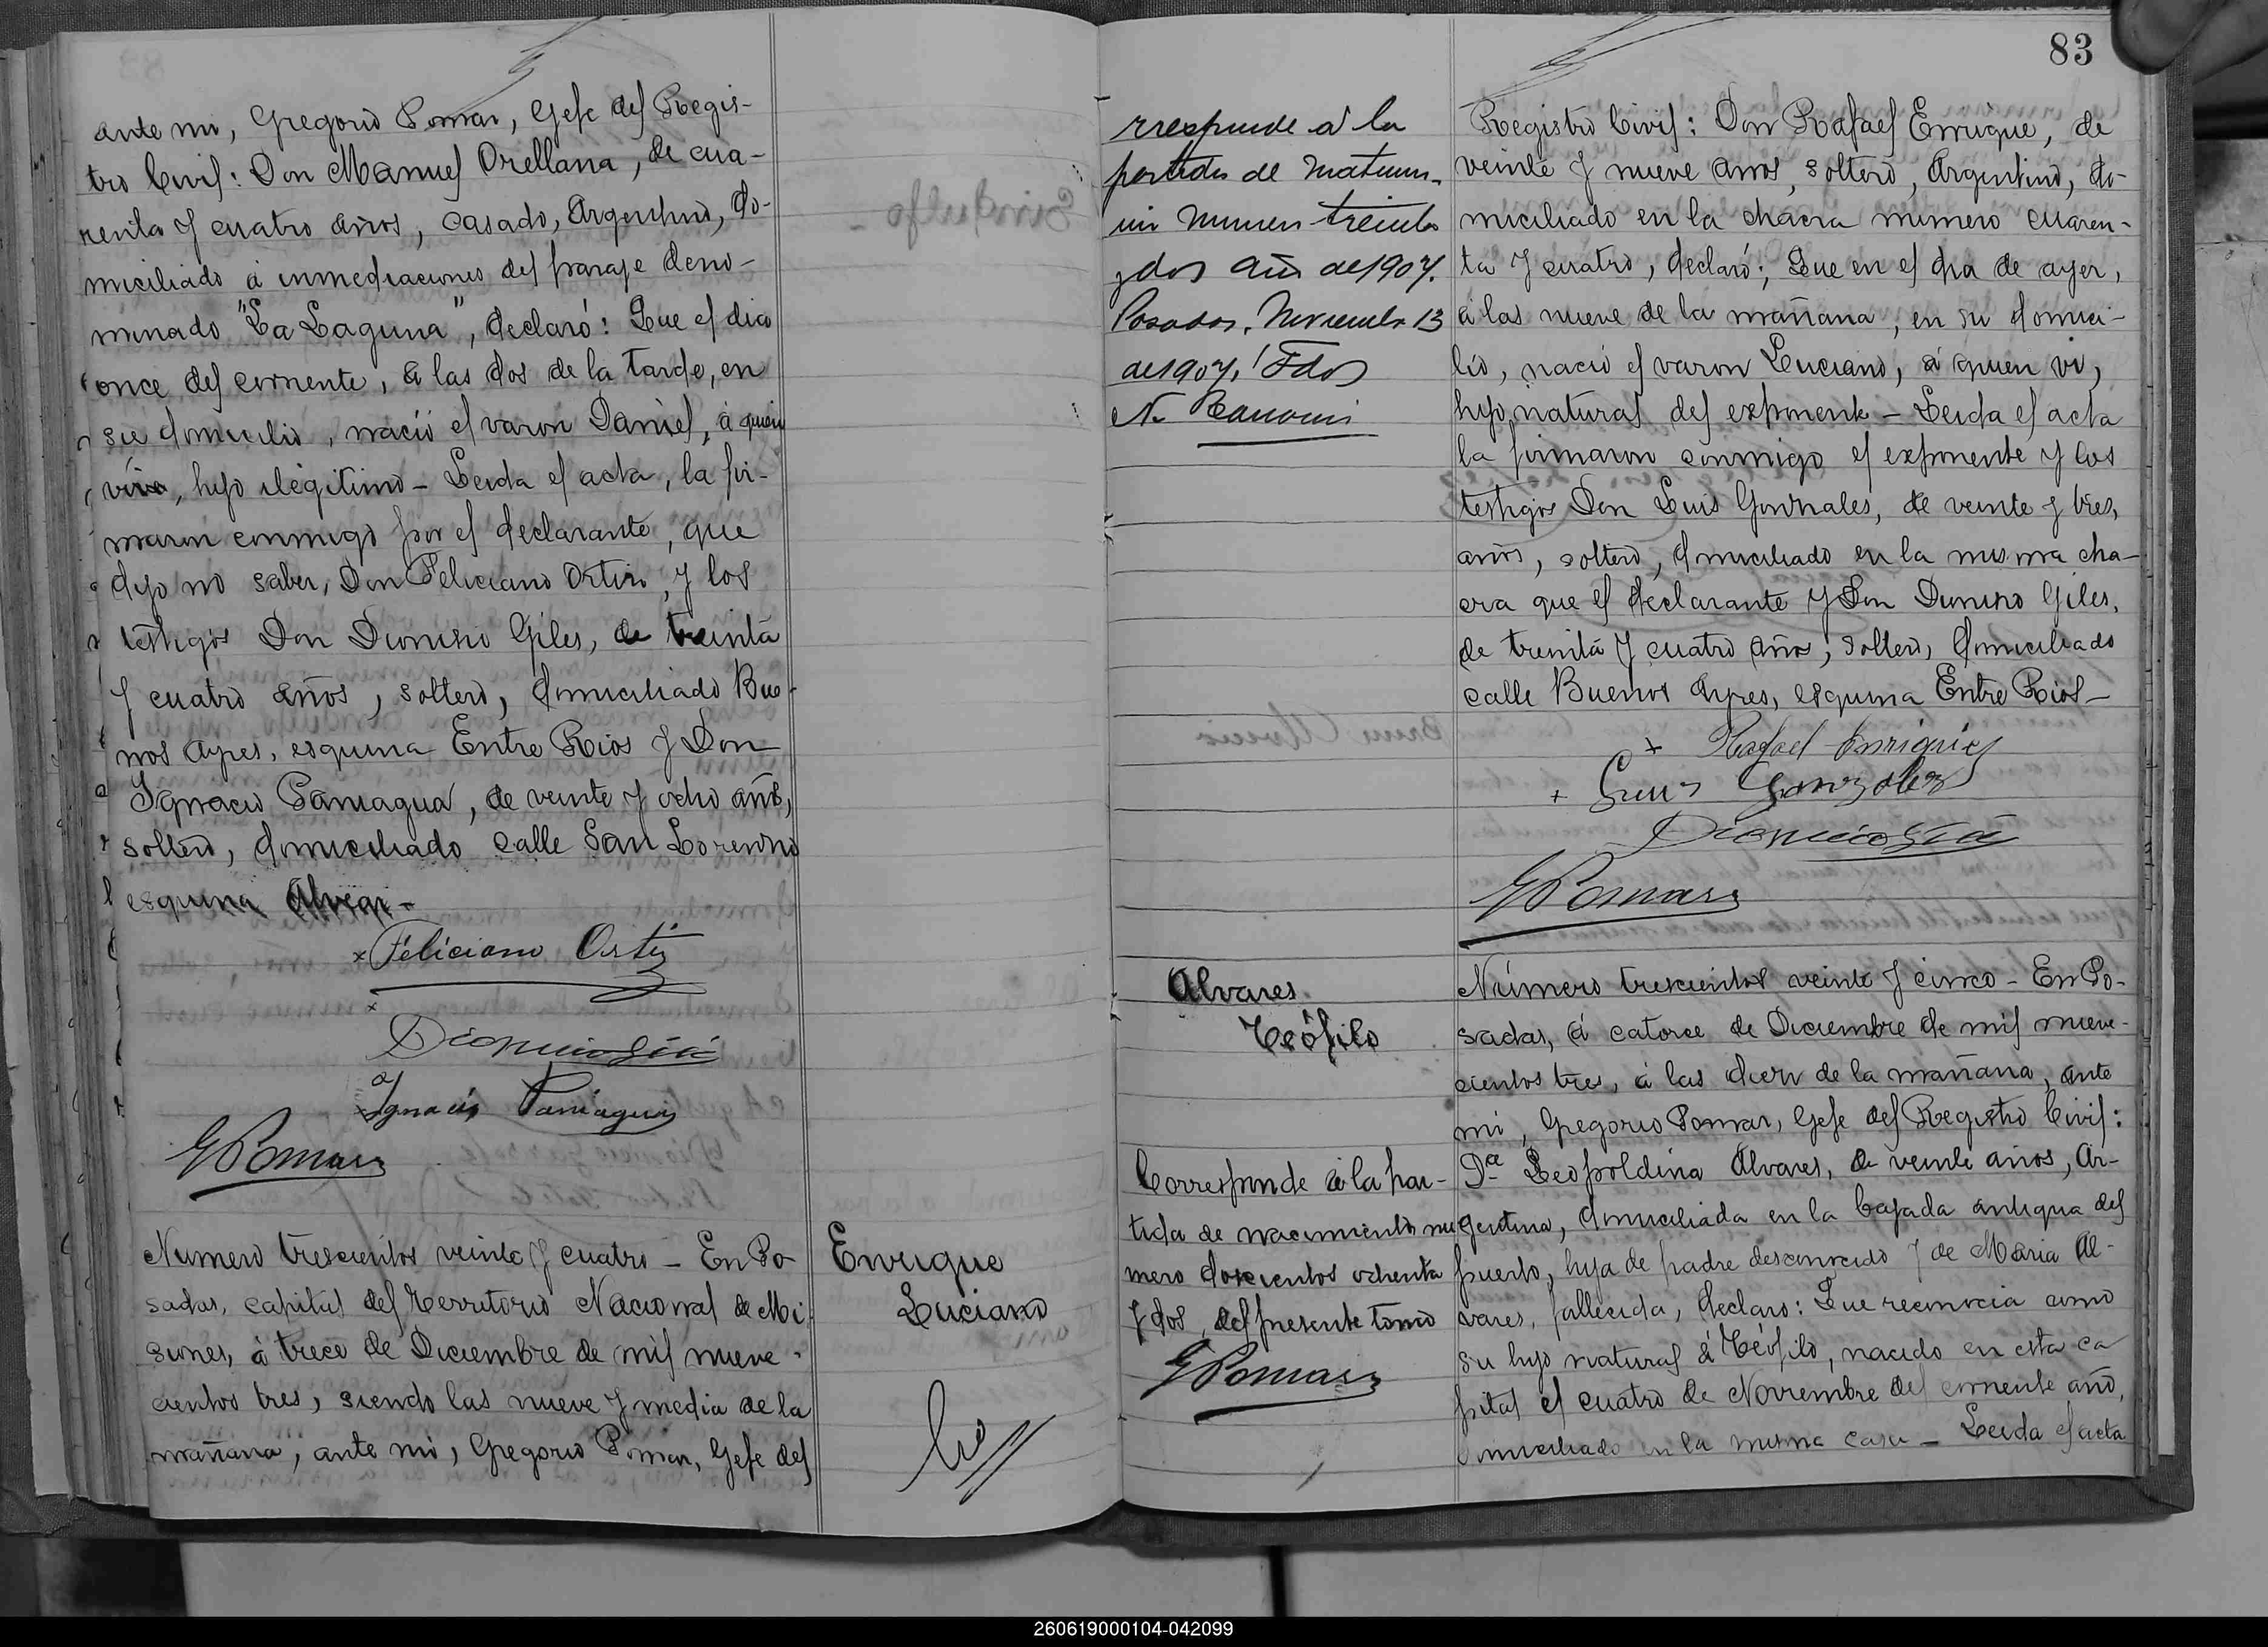 ante mi, Gregorio Pomar, Gefe del Regis-
tro Civil: Don Manuel Orellana, de cua-
renta y cuatro años, casado, Argentino, do-
miciliado á inmediaciones del paraje deno-
minado "La Laguna", declaró: Que el dia
once del corriente, á las dos de la tarde, en
su domicilio, nació el varon Daniel, á quien
vi, hijo ilegitimo - Leida el acta, la fir-
maron conmigo por el declarante, que
dijo no saber, Don Feliciano Ortiz, y los
testigos Don Dionisio Giles, de treinta
y cuatro años, soltero, domiciliado Bue-
nos Ayres, esquina Entre Rios y Don
Ignacio Paniagua, de veinte y ocho años,
soltero, domiciliado calle San Lorenzo
esquina Alvear -
x Feliciano Ortiz
x
Dionicio Gili
Ignacio Paniagua
G Pomar
Numero trescientos veinte y cuatro - En Po-
sadas, capital del Territorio Nacional de Mi-
siones, á trece de Diciembre de mil nueve-
cientos tres, siendo las nueve y media de la
mañana, ante mi, Gregorio Pomar, Gefe del
Enrique
Luciano
Co//
rresponde a la
partida de matrimo-
nio numero treinta
y dos año de 1907.
Posadas, Noviembre 13
de 1907. Fdo
83
Registro Civil: Don Rafael Enrique, de
veinte y nueve años, soltero, Argentino, do-
miciliado en la chacra número cuaren-
ta y cuatro, declaró; Que en el dia de ayer,
á las nueve de la mañana, en su domici-
lio, nació el varon Luciano, á quien vi,
hijo natural del exponente - Leida el acta
la firmaron conmigo el exponente y los
testigos Don Luis Gonzales, de veinte y tres,
años, soltero, domiciliado en la misma cha-
cra que el declarante y Don Dionisio Giles,
de treinta y cuatro años, soltero, domiciliado
calle Buenos Ayres, esquina Entre Rios -
x Rafael Enriquez
x Luis Gonzalez
Dionicio Gili
G Pomar
Alvares
Teófilo
Corresponde á la par-
tida de nacimiento nu-
mero doscientos ochenta
y dos, del presente tomo
G Pomar
Número trescientos veinte y cinco - En Po-
sadas, á catorce de Diciembre de mil nueve-
cientos tres, á las diez de la mañana, ante
mi, Gregorio Pomar, Gefe del Registro Civil:
Da Leopoldina Alvares, de veinte años, Ar-
gentina, domiciliada en la bajada antigua del
puerto, hija de padre desconocido y de Maria Al-
vares, fallecida, declaro: Que reconocia como
su hijo natural á Teófilo, nacido en esta ca
pital el cuatro de Noviembre del corriente año,
domiciliado en la misma casa - Leida el acta
260619000104-042099